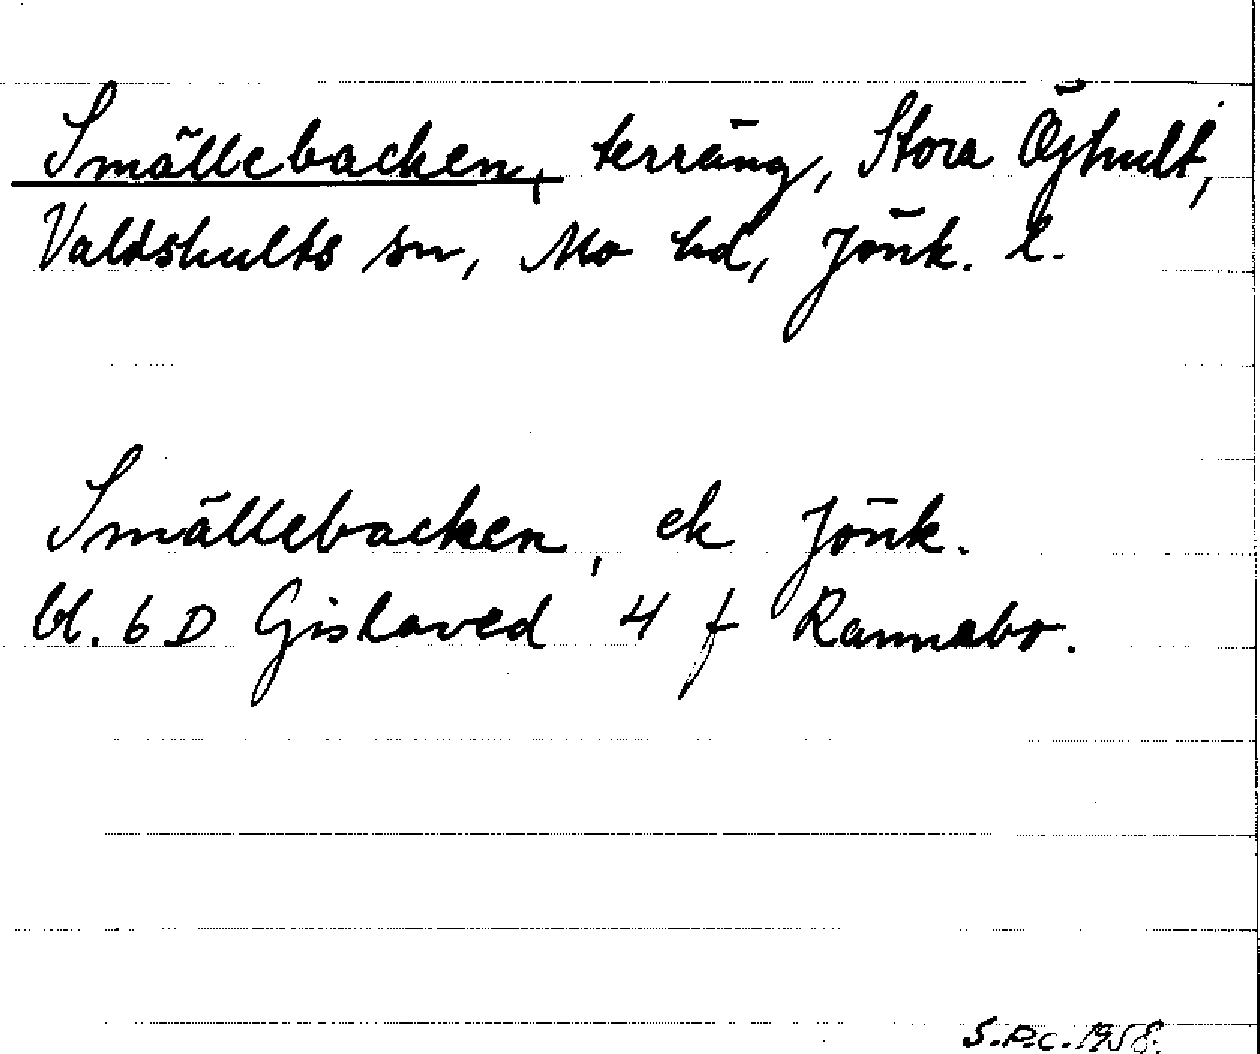 Smällebacken, terräng, Stora Öjhult,
Valdshults sn, Mo hd, Jönk. l.
Smällebacken, ek Jönk.
bl. 6 D Gislaved 4 f Rannebo.
S.P.C. 1958.